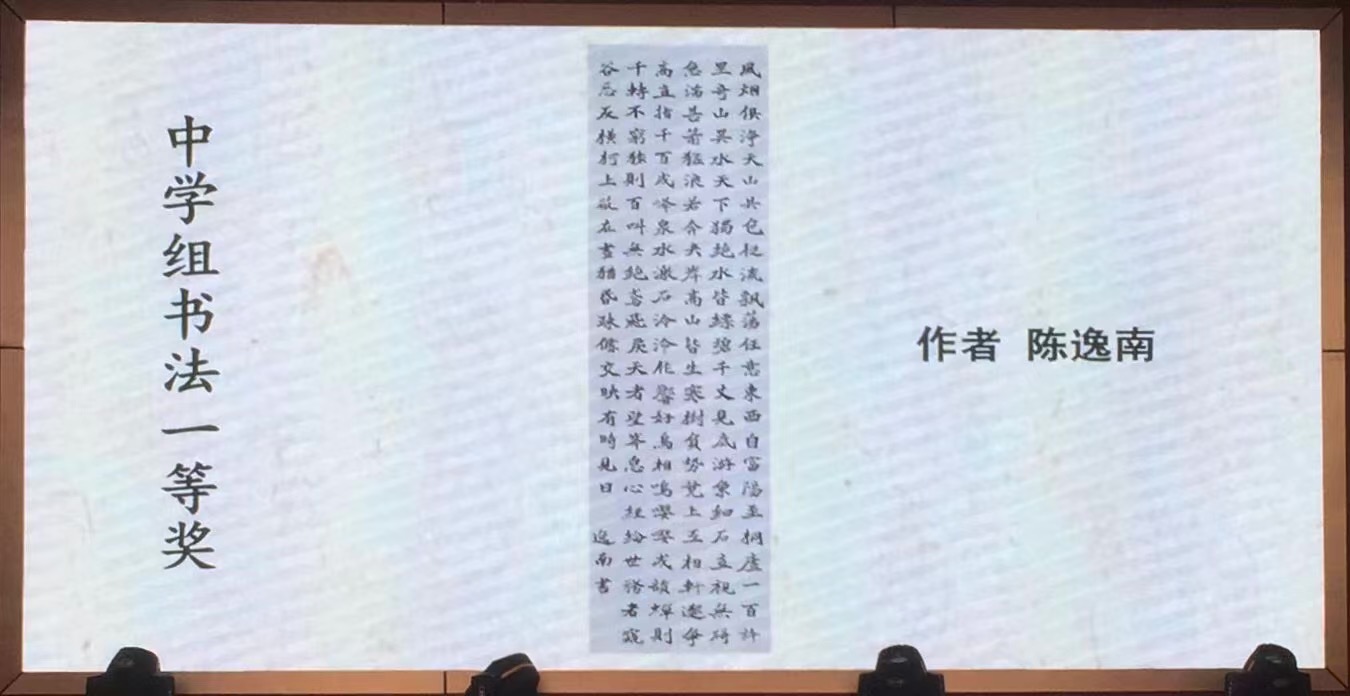 中学组书法一等奖
風烟俱净天山共色從流飄蕩任意東西自富陽至桐廬一百許
里奇山異水天下獨絶水皆縹碧千丈見底游魚細石直視無碍
急湍甚箭猛浪若奔夹岸高山皆生寒樹負勢競上互相軒邈争
高直指千百成峰泉水激石泠泠作響好鳥相鳴嚶嚶成韻蟬則
千轉不窮猿則百叫無絶鳶飛戾天者望峯息心經綸世務者窺
谷忘反横柯上蔽在晝猶昏疎條交映有時見日
逸南書
作者 陈逸南